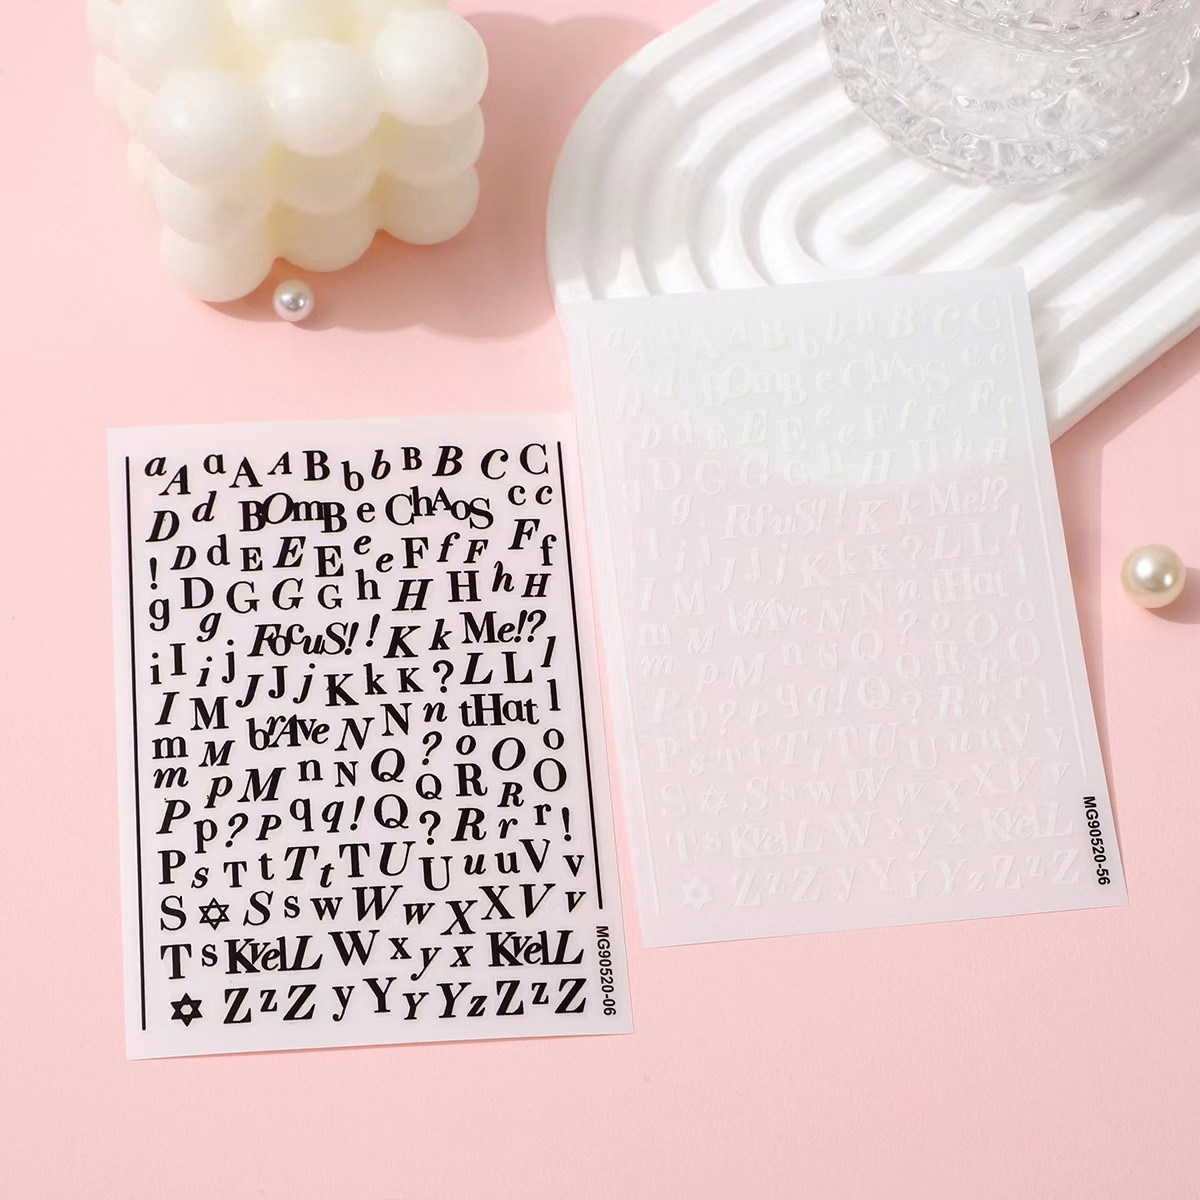 a A a A A B b b B B C C
D d BOmB e ChAoS c c
! D d E E E e e F f F F f
g D G G G h H H h H
g FocuS! ! K k Me!?
i I i j J J j K k K ? L L l
I M brAve N N n tHat l
m M ? o O o
m p M n N Q Q R R O
P p ? P q q ! Q ? R r r !
P s T t T t T U U u u V v
S ✡ S s w W w X X V v
T s KyelL W x y x KyelL
✡ Z z Z y Y Y Y z Z z Z
MG90520-06
A A B b b B B C C
d BOmB e ChAoS c c
D d E E E e e F f F F f
D G G G h H H h H
g FocuS! ! K k Me!?
i j J J j K k K ? L L l
I M brAve N N n tHat
m M ? o O o
m p M n N Q Q R R O
P p ? P q q ! Q ? R r r !
P s T t T t T U U u u V v
S ✡ S s w W w x X V v
T s KyelL W x y x KyelL
✡ Z z Z y Y Y Y z Z z Z
MG90520-56